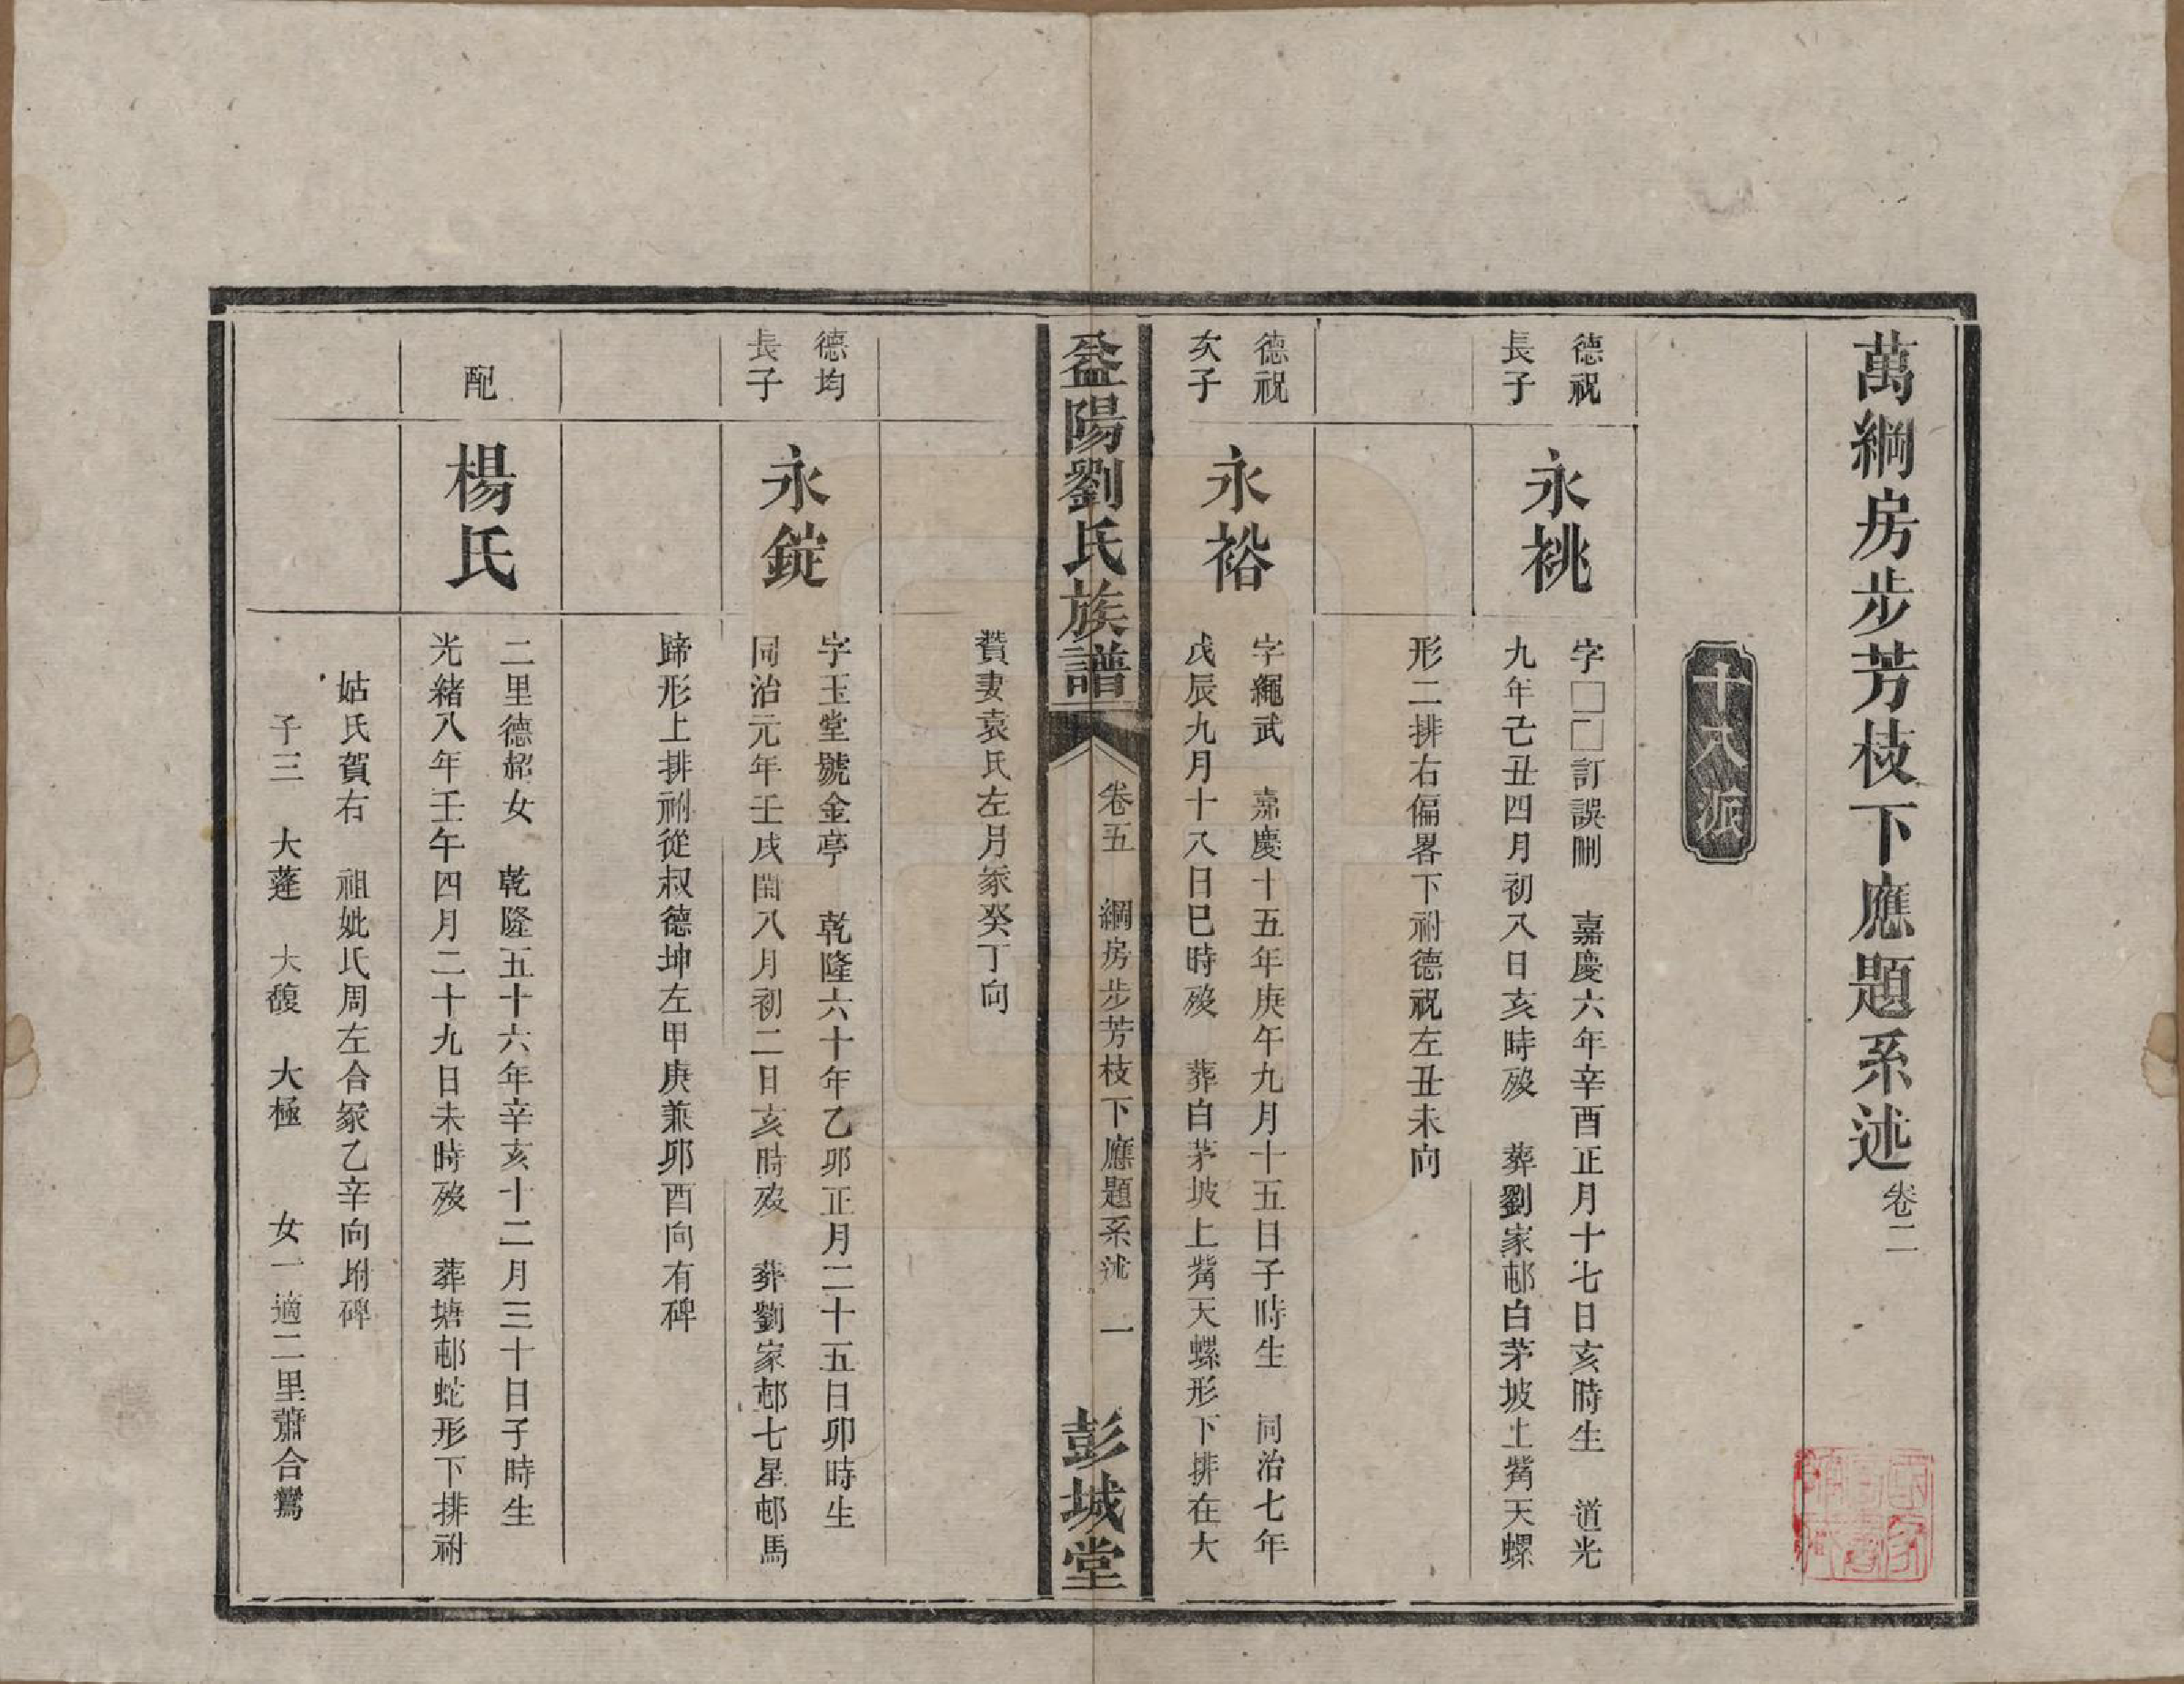 萬綱房步芳枝下應題系述卷二
十八派
德祝
長子
永祧
字□□訂誤刪 嘉慶六年辛酉正月十七日亥時生 道光
九年己丑四月初八日亥時歿 葬劉家邨白茅坡上觜天螺
形二排右偏畧下祔德祝左丑未向
德祝
次子
永裕
字繩武 嘉慶十五年庚午九月十五日子時生 同治七年
戊辰九月十八日巳時歿 葬白茅坡上觜天螺形下排在大
贊妻袁氏左月冢癸丁向
益陽劉氏族譜
卷五 綱房步芳枝下應題系述 一
彭城堂
德均
長子
永錠
字玉堂號金亭 乾隆六十年乙卯正月二十五日卯時生
同治元年壬戌閏八月初二日亥時歿 葬劉家邨七星邨馬
蹄形上排祔從叔德坤左甲庚兼卯酉向有碑
配
楊氏
二里德紹女 乾隆五十六年辛亥十二月三十日子時生
光緒八年壬午四月二十九日未時歿 葬塘邨蛇形下排祔
姑氏賀右 祖妣氏周左合冢乙辛向坿碑
子三 大蓬 大馥 大極 女一適二里蕭合鸞